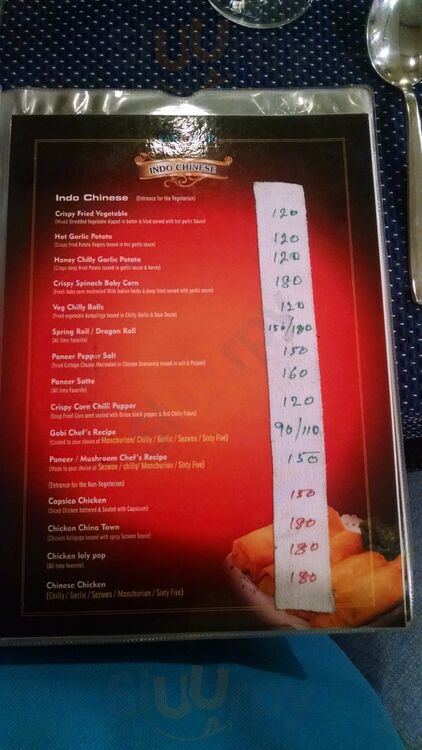 INDO CHINESE
Indo Chinese (Entrance for the Vegetarian)
Crispy Fried Vegetable 120
(Mixed Shredded Vegetable dipped in batter & fried served with hot garlic Sauce)
Hot Garlic Potato 120
(Crispy fried Potato fingers tossed in hot garlic sauce)
Honey Chilly Garlic Potato 120
(Crispy deep fried Potato tossed in garlic sauce & honey)
Crispy Spinach Baby Corn 180
(Fresh baby corn marinated With Indian herbs & deep fried served with garlic sauce)
Veg Chilly Balls 120
(Fried vegetable dumplings tossed in Chilly, Garlic & Soya Sauce)
Spring Roll / Dragon Roll 150/180
(All time Favorite)
Paneer Pepper Salt 150
(Fried Cottage Cheese Marinated in Chinese Seasoning tossed in salt & Pepper)
Paneer Satte 160
(All time Favorite)
Crispy Corn Chilli Pepper 120
(Deep Fried Corn seed sauted with Onion black pepper & Red Chilly flakes)
Gobi Chef's Recipe 90/110
(Cooked to your choice of Manchurian/ Chilly / Garlic / Sezwan / Sixty Five)
Paneer / Mushroom Chef's Recipe 150
(Made to your choice of Sezwan / chilly/ Manchurian / Sixty Five)
(Entrance for the Non-Vegetarian)
Capsico Chicken 150
(Diced Chicken battered & Sauted with Capsicum)
Chicken China Town 180
(Chicken lollipops tossed with spicy Sezwan Sauce)
Chicken loly pop 180
(All time favorite)
Chinese Chicken 180
(Chilly / Garlic / Sezwan / Manchurian / Sixty Five)